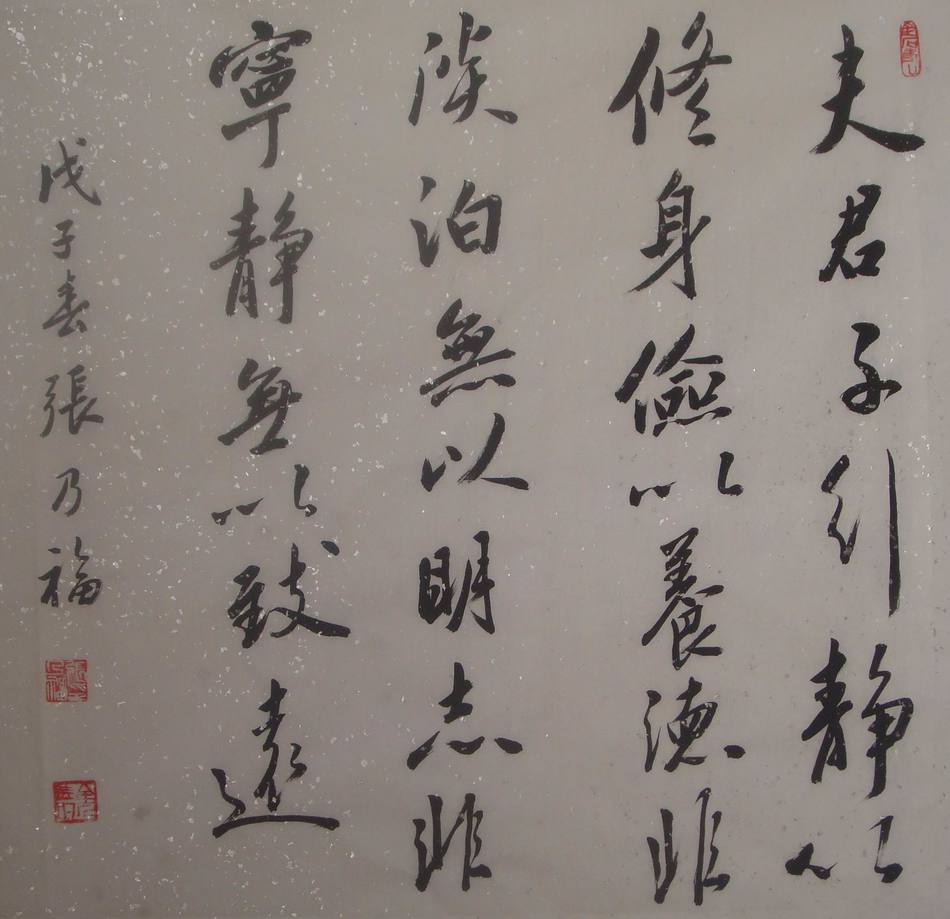 夫君子行靜以
修身儉以養德非
淡泊無以明志非
寧靜無以致遠
戊子春張乃福